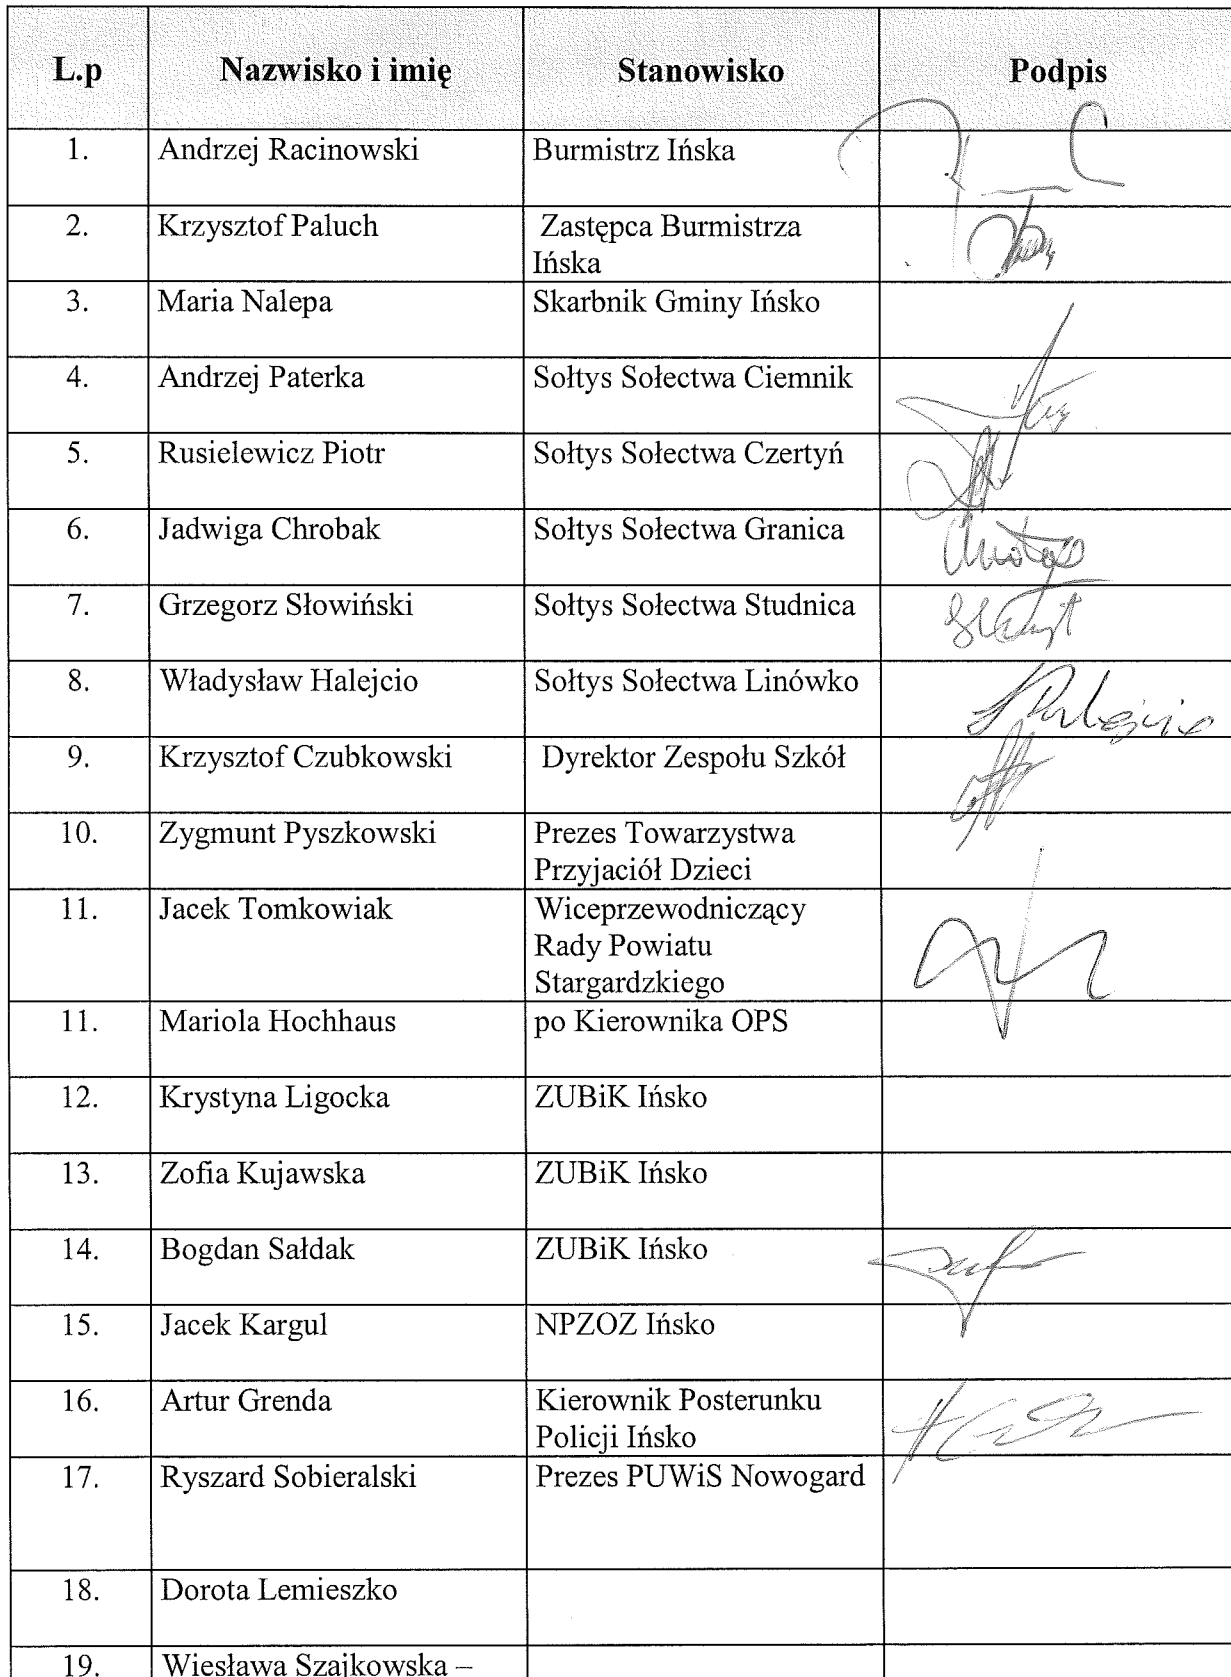 L.p Nazwisko i imię Stanowisko Podpis
1. Andrzej Racinowski Burmistrz Ińska
2. Krzysztof Paluch Zastępca Burmistrza
Ińska
3. Maria Nalepa Skarbnik Gminy Ińsko
4. Andrzej Paterka Sołtys Sołectwa Ciemnik
5. Rusielewicz Piotr Sołtys Sołectwa Czertyń
6. Jadwiga Chrobak Sołtys Sołectwa Granica
7. Grzegorz Słowiński Sołtys Sołectwa Studnica
8. Władysław Halejcio Sołtys Sołectwa Linówko
9. Krzysztof Czubkowski Dyrektor Zespołu Szkół
10. Zygmunt Pyszkowski Prezes Towarzystwa
Przyjaciół Dzieci
11. Jacek Tomkowiak Wiceprzewodniczący
Rady Powiatu
Stargardzkiego
11. Mariola Hochhaus po Kierownika OPS
12. Krystyna Ligocka ZUBiK Ińsko
13. Zofia Kujawska ZUBiK Ińsko
14. Bogdan Sałdak ZUBiK Ińsko
15. Jacek Kargul NPZOZ Ińsko
16. Artur Grenda Kierownik Posterunku
Policji Ińsko
17. Ryszard Sobieralski Prezes PUWiS Nowogard
18. Dorota Lemieszko
19. Wiesława Szajkowska –